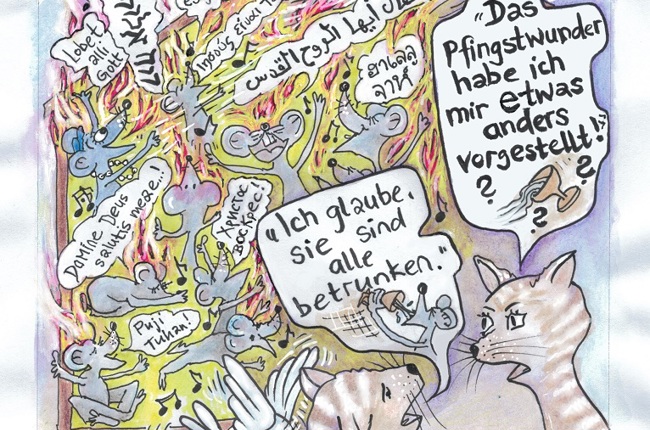 Lobet
alli
Gott
Ιησούς είναι
تعال أيها الروح القدس
ฮาเลลู
ลายํ
Domine Deus
salutis meae!!
Христе
воскрес!
Puji
Tuhan!
"Das
Pfingstwunder
habe ich
mir etwas
anders
vorgestellt!"
?
?
?
"Ich glaube,
sie sind
alle
betrunken."